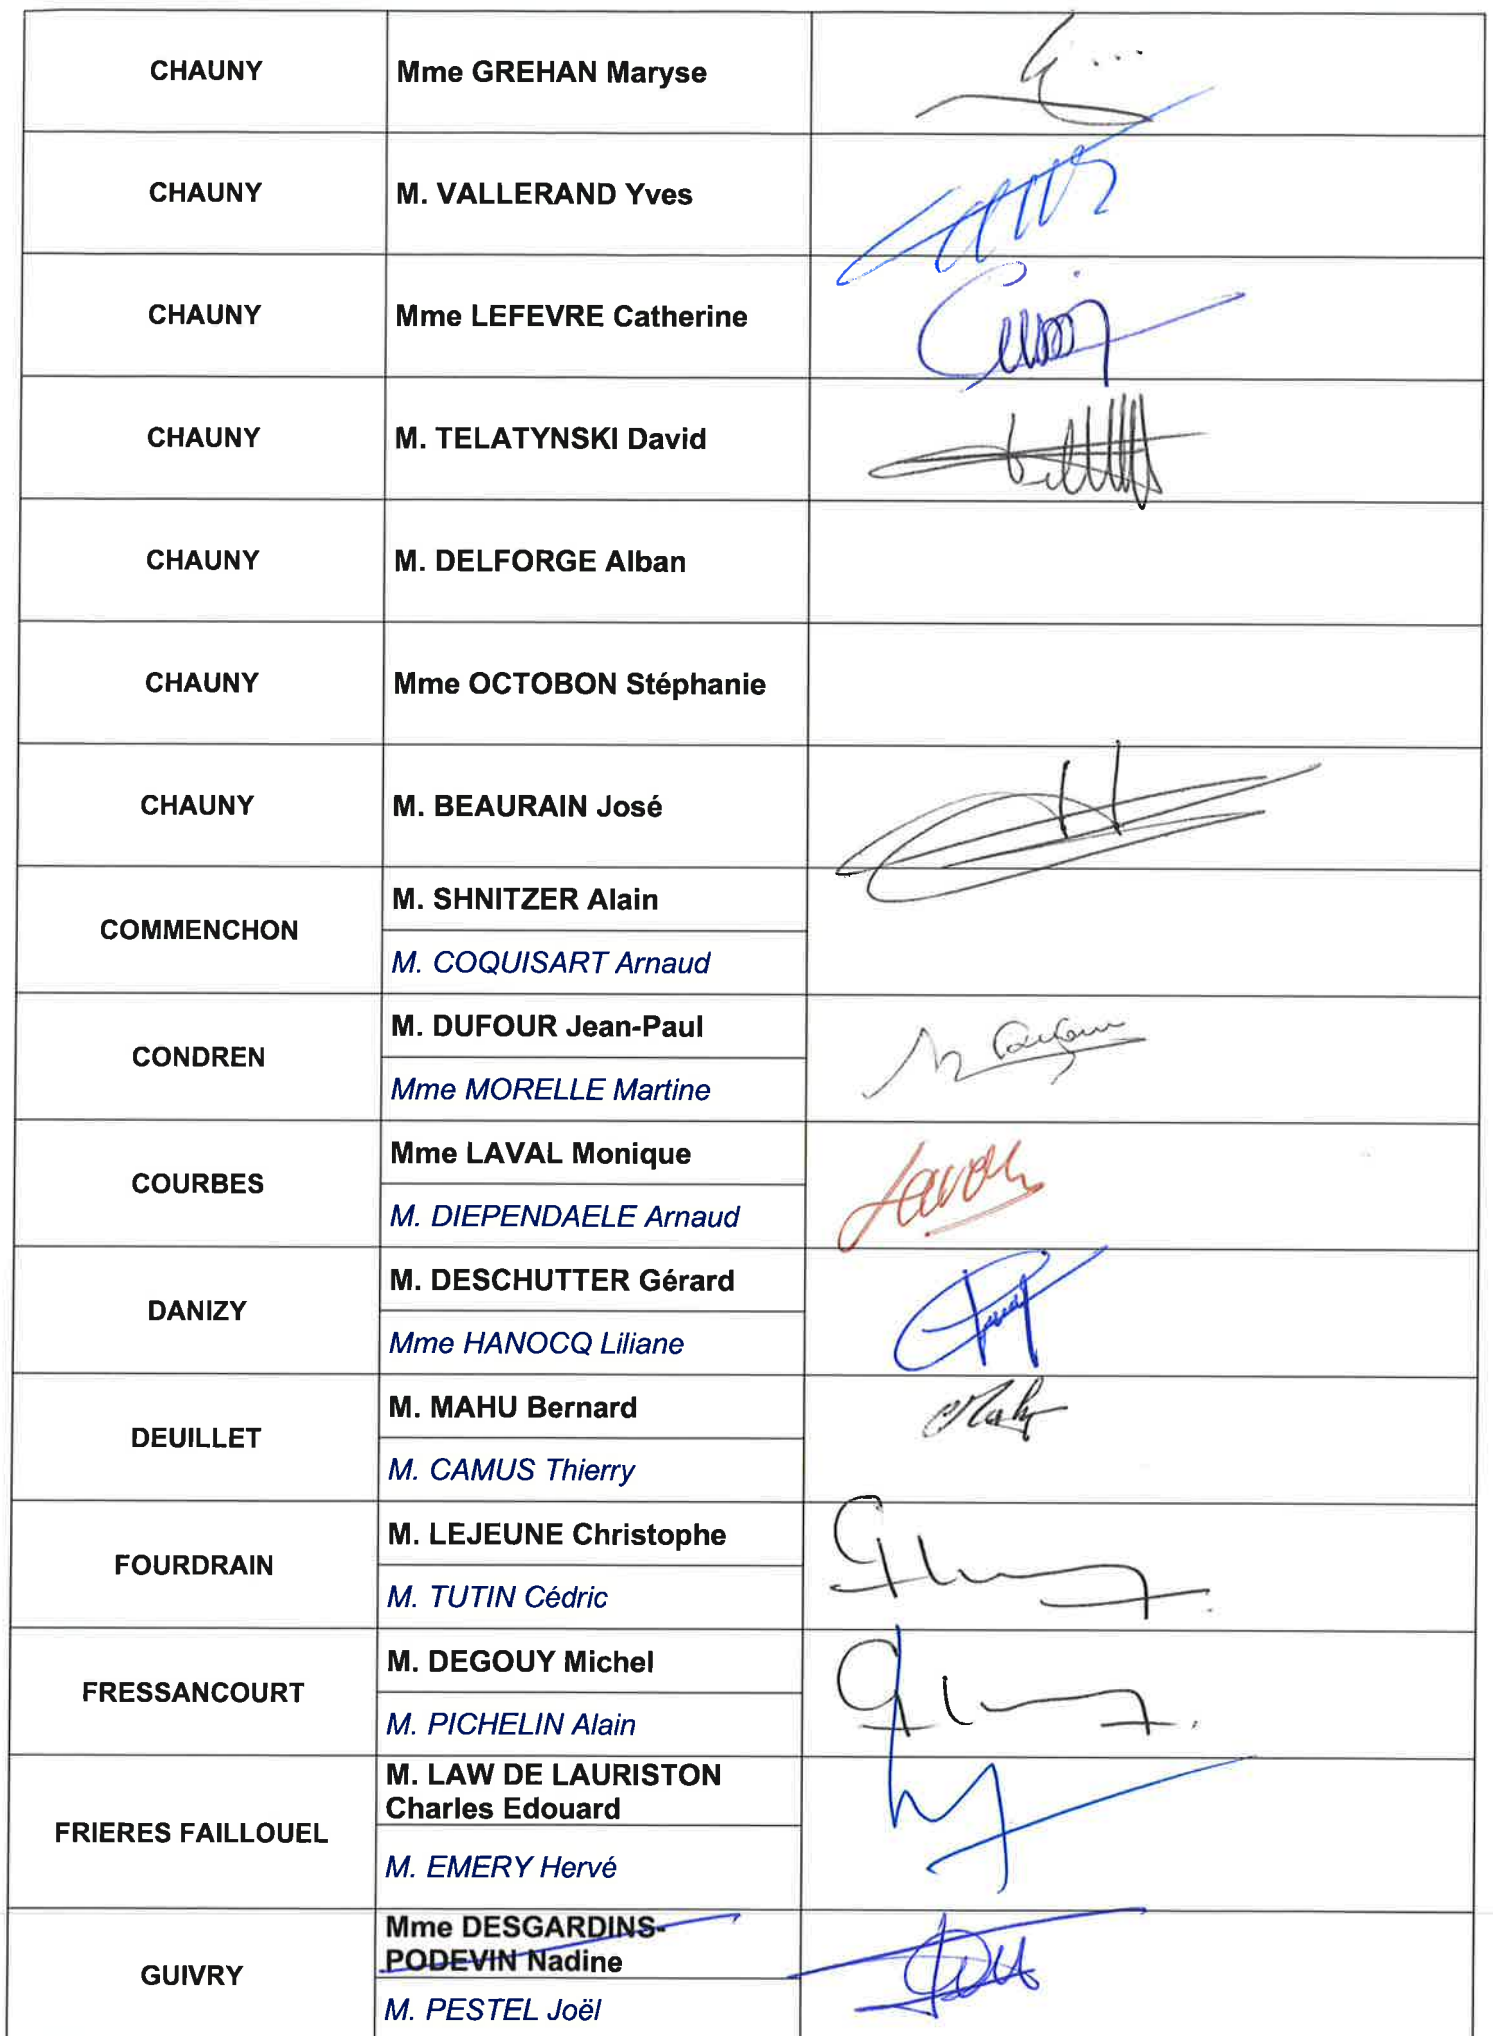 CHAUNY Mme GREHAN Maryse
CHAUNY M. VALLERAND Yves
CHAUNY Mme LEFEVRE Catherine
CHAUNY M. TELATYNSKI David
CHAUNY M. DELFORGE Alban
CHAUNY Mme OCTOBON Stéphanie
CHAUNY M. BEAURAIN José
COMMENCHON
M. SHNITZER Alain
M. COQUISART Arnaud
CONDREN
M. DUFOUR Jean-Paul
Mme MORELLE Martine
COURBES
Mme LAVAL Monique
M. DIEPENDAELE Arnaud
DANIZY
M. DESCHUTTER Gérard
Mme HANOCQ Liliane
DEUILLET
M. MAHU Bernard
M. CAMUS Thierry
FOURDRAIN
M. LEJEUNE Christophe
M. TUTIN Cédric
FRESSANCOURT
M. DEGOUY Michel
M. PICHELIN Alain
FRIERES FAILLOUEL
M. LAW DE LAURISTON
Charles Edouard
M. EMERY Hervé
GUIVRY
Mme DESGARDINS-
PODEVIN Nadine
M. PESTEL Joël